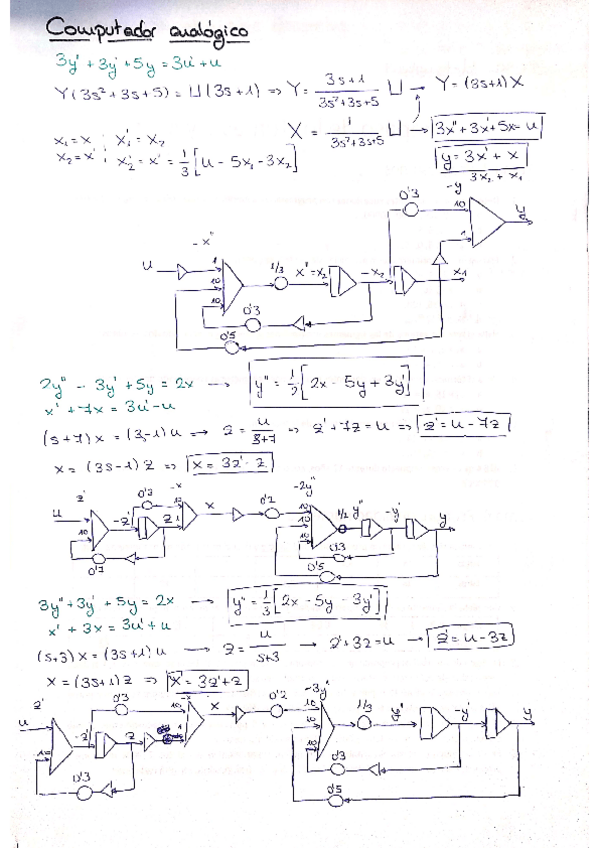 Computador analógico
3y" + 3y' + 5y = 3u' + u
Y(3s² + 3s + 5) = U(3s + 1) => Y = (3s+1)/(3s²+3s+5) U → Y = (3s+1)X
X = 1/(3s²+3s+5) U → 3x" + 3x' + 5x = u
x₁ = x ; x₁' = x₂
x₂ = x' ; x₂' = x" = 1/3 [u - 5x₁ - 3x₂]
y = 3x' + x
3x₂ + x₁
0'3 -y
10 y
-x" 1
u 1 10 10 1/3 x" = x₂ -x₂ x₁
0'3
0'5
2y" - 3y' + 5y = 2x → y" = 1/2 [2x - 5y + 3y']
x' + 7x = 3u' - u
(s+7)x = (3s-1)u → z = u/(s+7) => z' + 7z = u => z' = u - 7z
x = (3s-1)z => x = 3z' - z
z' 0'3 -x x 0'2 -2y" 1/2 y" -y' y
u 10 -z' z 1 10 10 10 0'3
0'7 0'5
3y" + 3y' + 5y = 2x → y" = 1/3 [2x - 5y - 3y']
x' + 3x = 3u' + u
(s+3)x = (3s+1)u → z = u/(s+3) → z' + 3z = u → z' = u - 3z
x = (3s+1)z => x = 3z' + z
z' 0'3 10 -x x 0'2 10 -3y" 1/3 y" -y' y
u -z' z 1 10 10
10 0'3 0'3
0'5